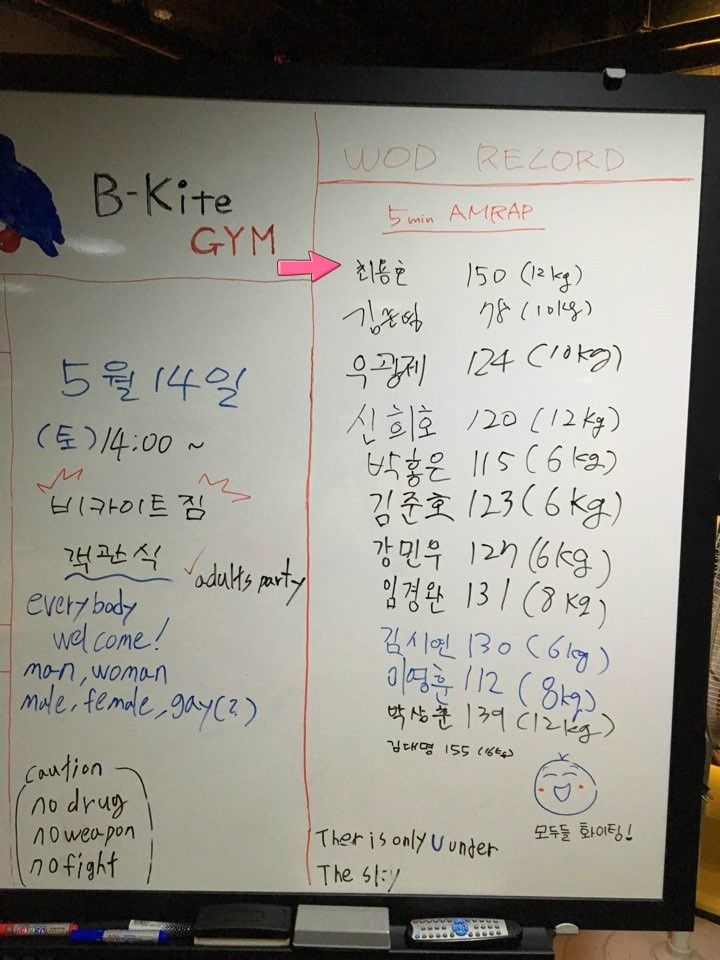 B-Kite
GYM
5월 14일
(토) 14:00 ~
비카이트짐
객관식
✓ adults party
everybody
welcome!
man, woman
male, female, gay(?)
caution
no drug
no weapon
no fight
WOD RECORD
5 min AMRAP
최용호 150 (12kg)
78 (10kg)
우광제 124 (10kg)
신희호 120 (12kg)
박홍은 115 (6kg)
김준호 123 (6kg)
강민우 127 (6kg)
임경완 131 (8kg)
김시연 130 (6kg)
이영훈 112 (8kg)
박상훈 139 (12kg)
김대명 155
모두들 화이팅!
Ther is only U under
The sky